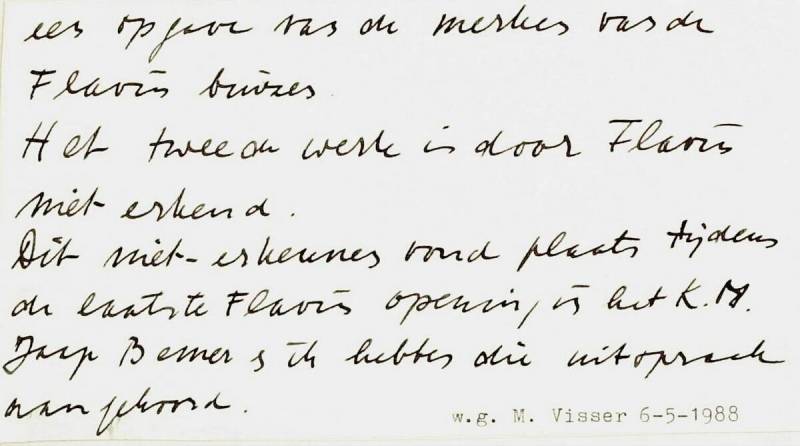 een opgave van de merken van de
Flavin buizen.
Het tweede werk is door Flavin
niet erkend.
Dit niet-erkennen vond plaats tijdens
de laatste Flavin opening, in het K.M.
Jaap Bremer & ik hebben die uitspraak
aangehoord.
w.g. M. Visser 6-5-1988